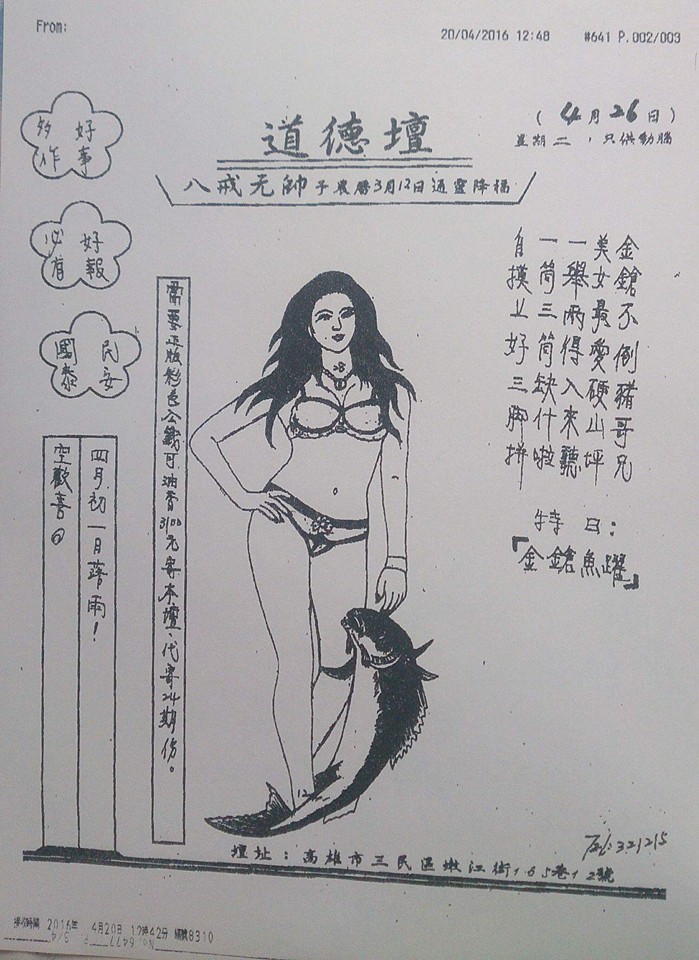 From:
20/04/2016 12:48 #641 P.002/003
(4月26日)
星期二，只供動腦
道德壇
八戒元帥于農曆3月12日通靈降福
好事
多作
好報
必有
民安
國泰
金鎗不倒豬哥兄
美女最愛硬山坪
一舉兩得入來聽
一筒三筒缺什啦
自摸上好三腳拼
特曰：
『金鎗魚躍』
需要正版彩色公籤可油香3100元寄本壇、代寄24期份。
四月初一日落雨！
空歡喜。
28
12
Tel:321215
壇址：高雄市三民區嫩江街165巷12號
接收時間 2016年 4月20日 12時42分 編號8310
No. 6477 P. 3/4